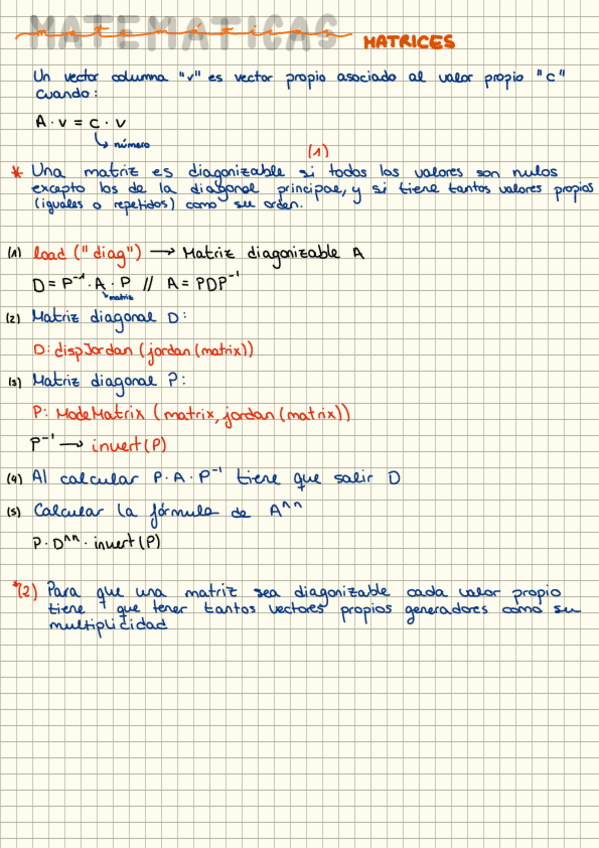 MATEMÁTICAS
matemáticas MATRICES
Un vector columna "v" es vector propio asociado al valor propio "c"
cuando:
A · v = c · v
↳ número
(1)
* Una matriz es diagonizable si todos los valores son nulos
excepto los de la diagonal principal, y si tiene tantos valores propios
(iguales o repetidos) como su orden.
(1) load ("diag") → Matriz diagonizable A
D = P⁻¹ · A · P // A = PDP⁻¹
↳ matriz
(2) Matriz diagonal D:
D: dispJordan (jordan (matrix))
(3) Matriz diagonal P:
P: ModeMatrix (matrix, jordan (matrix))
P⁻¹ → invert (P)
(4) Al calcular P · A · P⁻¹ tiene que salir D
(5) Calcular la fórmula de A^^n
P · D^^n · invert (P)
*(2) Para que una matriz sea diagonizable cada valor propio
tiene que tener tantos vectores propios generadores como su
multiplicidad